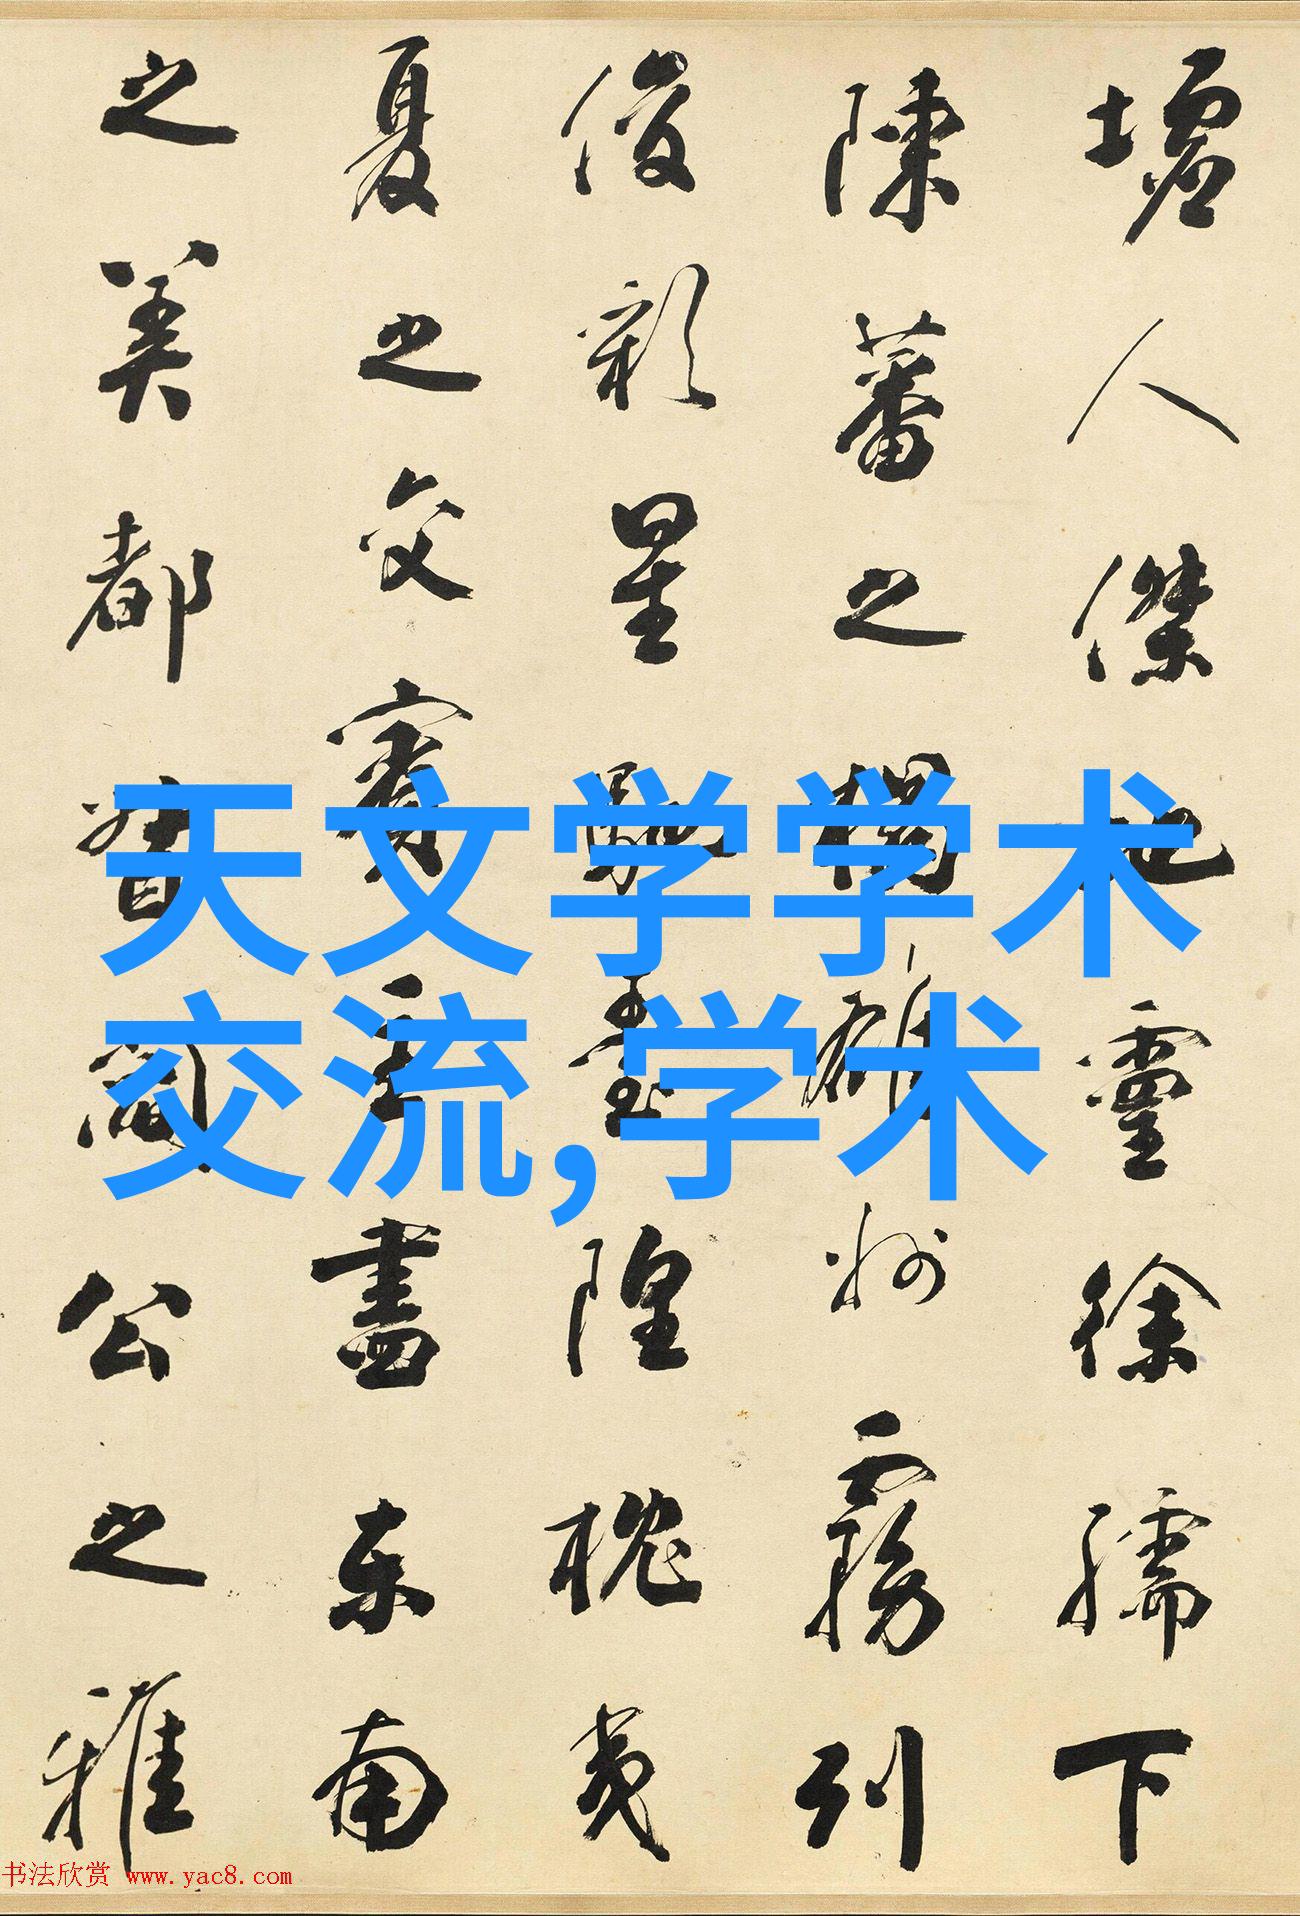 墟人傑地靈徐孺下
陳蕃之榻雄州霧列
俊彩星馳臺隍枕夷
夏之交賓主盡东南
之美都督閻公之雅
天文学学术
交流,学术
书法欣赏 www.yac8.com